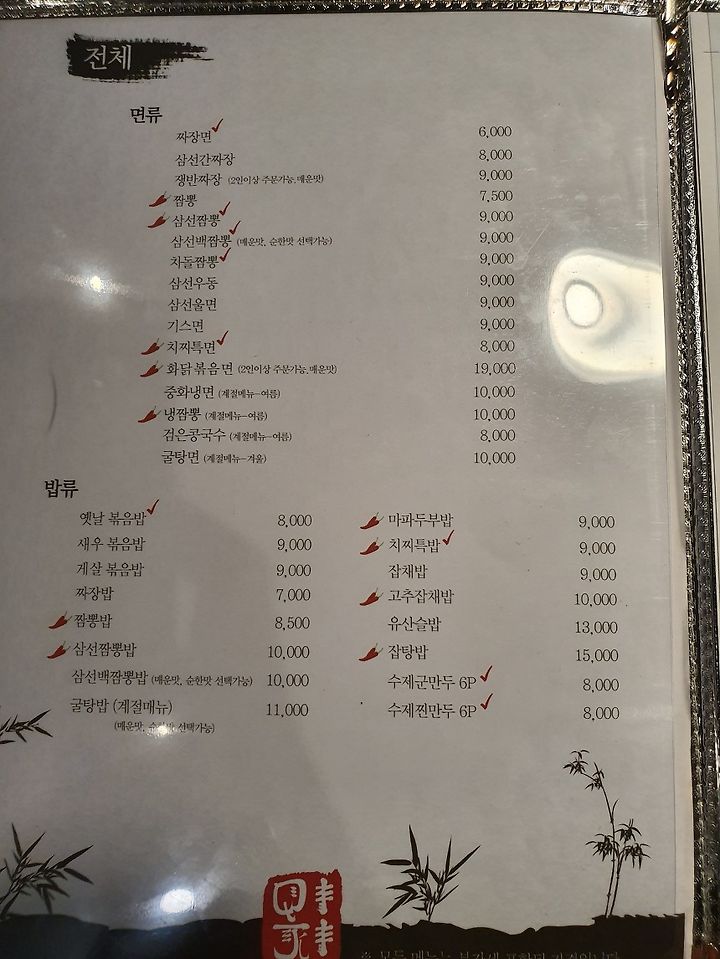 전체
면류
짜장면 6,000
삼선간짜장 8,000
쟁반짜장 (2인이상 주문가능, 매운맛) 9,000
짬뽕 7,500
삼선짬뽕 9,000
삼선백짬뽕 (매운맛, 순한맛 선택가능) 9,000
차돌짬뽕 9,000
삼선우동 9,000
삼선울면 9,000
기스면 9,000
치찌특면 8,000
화닭볶음면 (2인이상 주문가능, 매운맛) 19,000
중화냉면 (계절메뉴-여름) 10,000
냉짬뽕 (계절메뉴-여름) 10,000
검은콩국수 (계절메뉴-여름) 8,000
굴탕면 (계절메뉴-겨울) 10,000
밥류
옛날 볶음밥 8,000
새우 볶음밥 9,000
게살 볶음밥 9,000
짜장밥 7,000
짬뽕밥 8,500
삼선짬뽕밥 10,000
삼선백짬뽕밥 (매운맛, 순한맛 선택가능) 10,000
굴탕밥 (계절매뉴) 11,000
(매운맛, 순한맛 선택가능)
마파두부밥 9,000
치찌특밥 9,000
잡채밥 9,000
고추잡채밥 10,000
유산슬밥 13,000
잡탕밥 15,000
수제군만두 6P 8,000
수제찐만두 6P 8,000
※ 모든 메뉴는 부가세 포함된 가격입니다